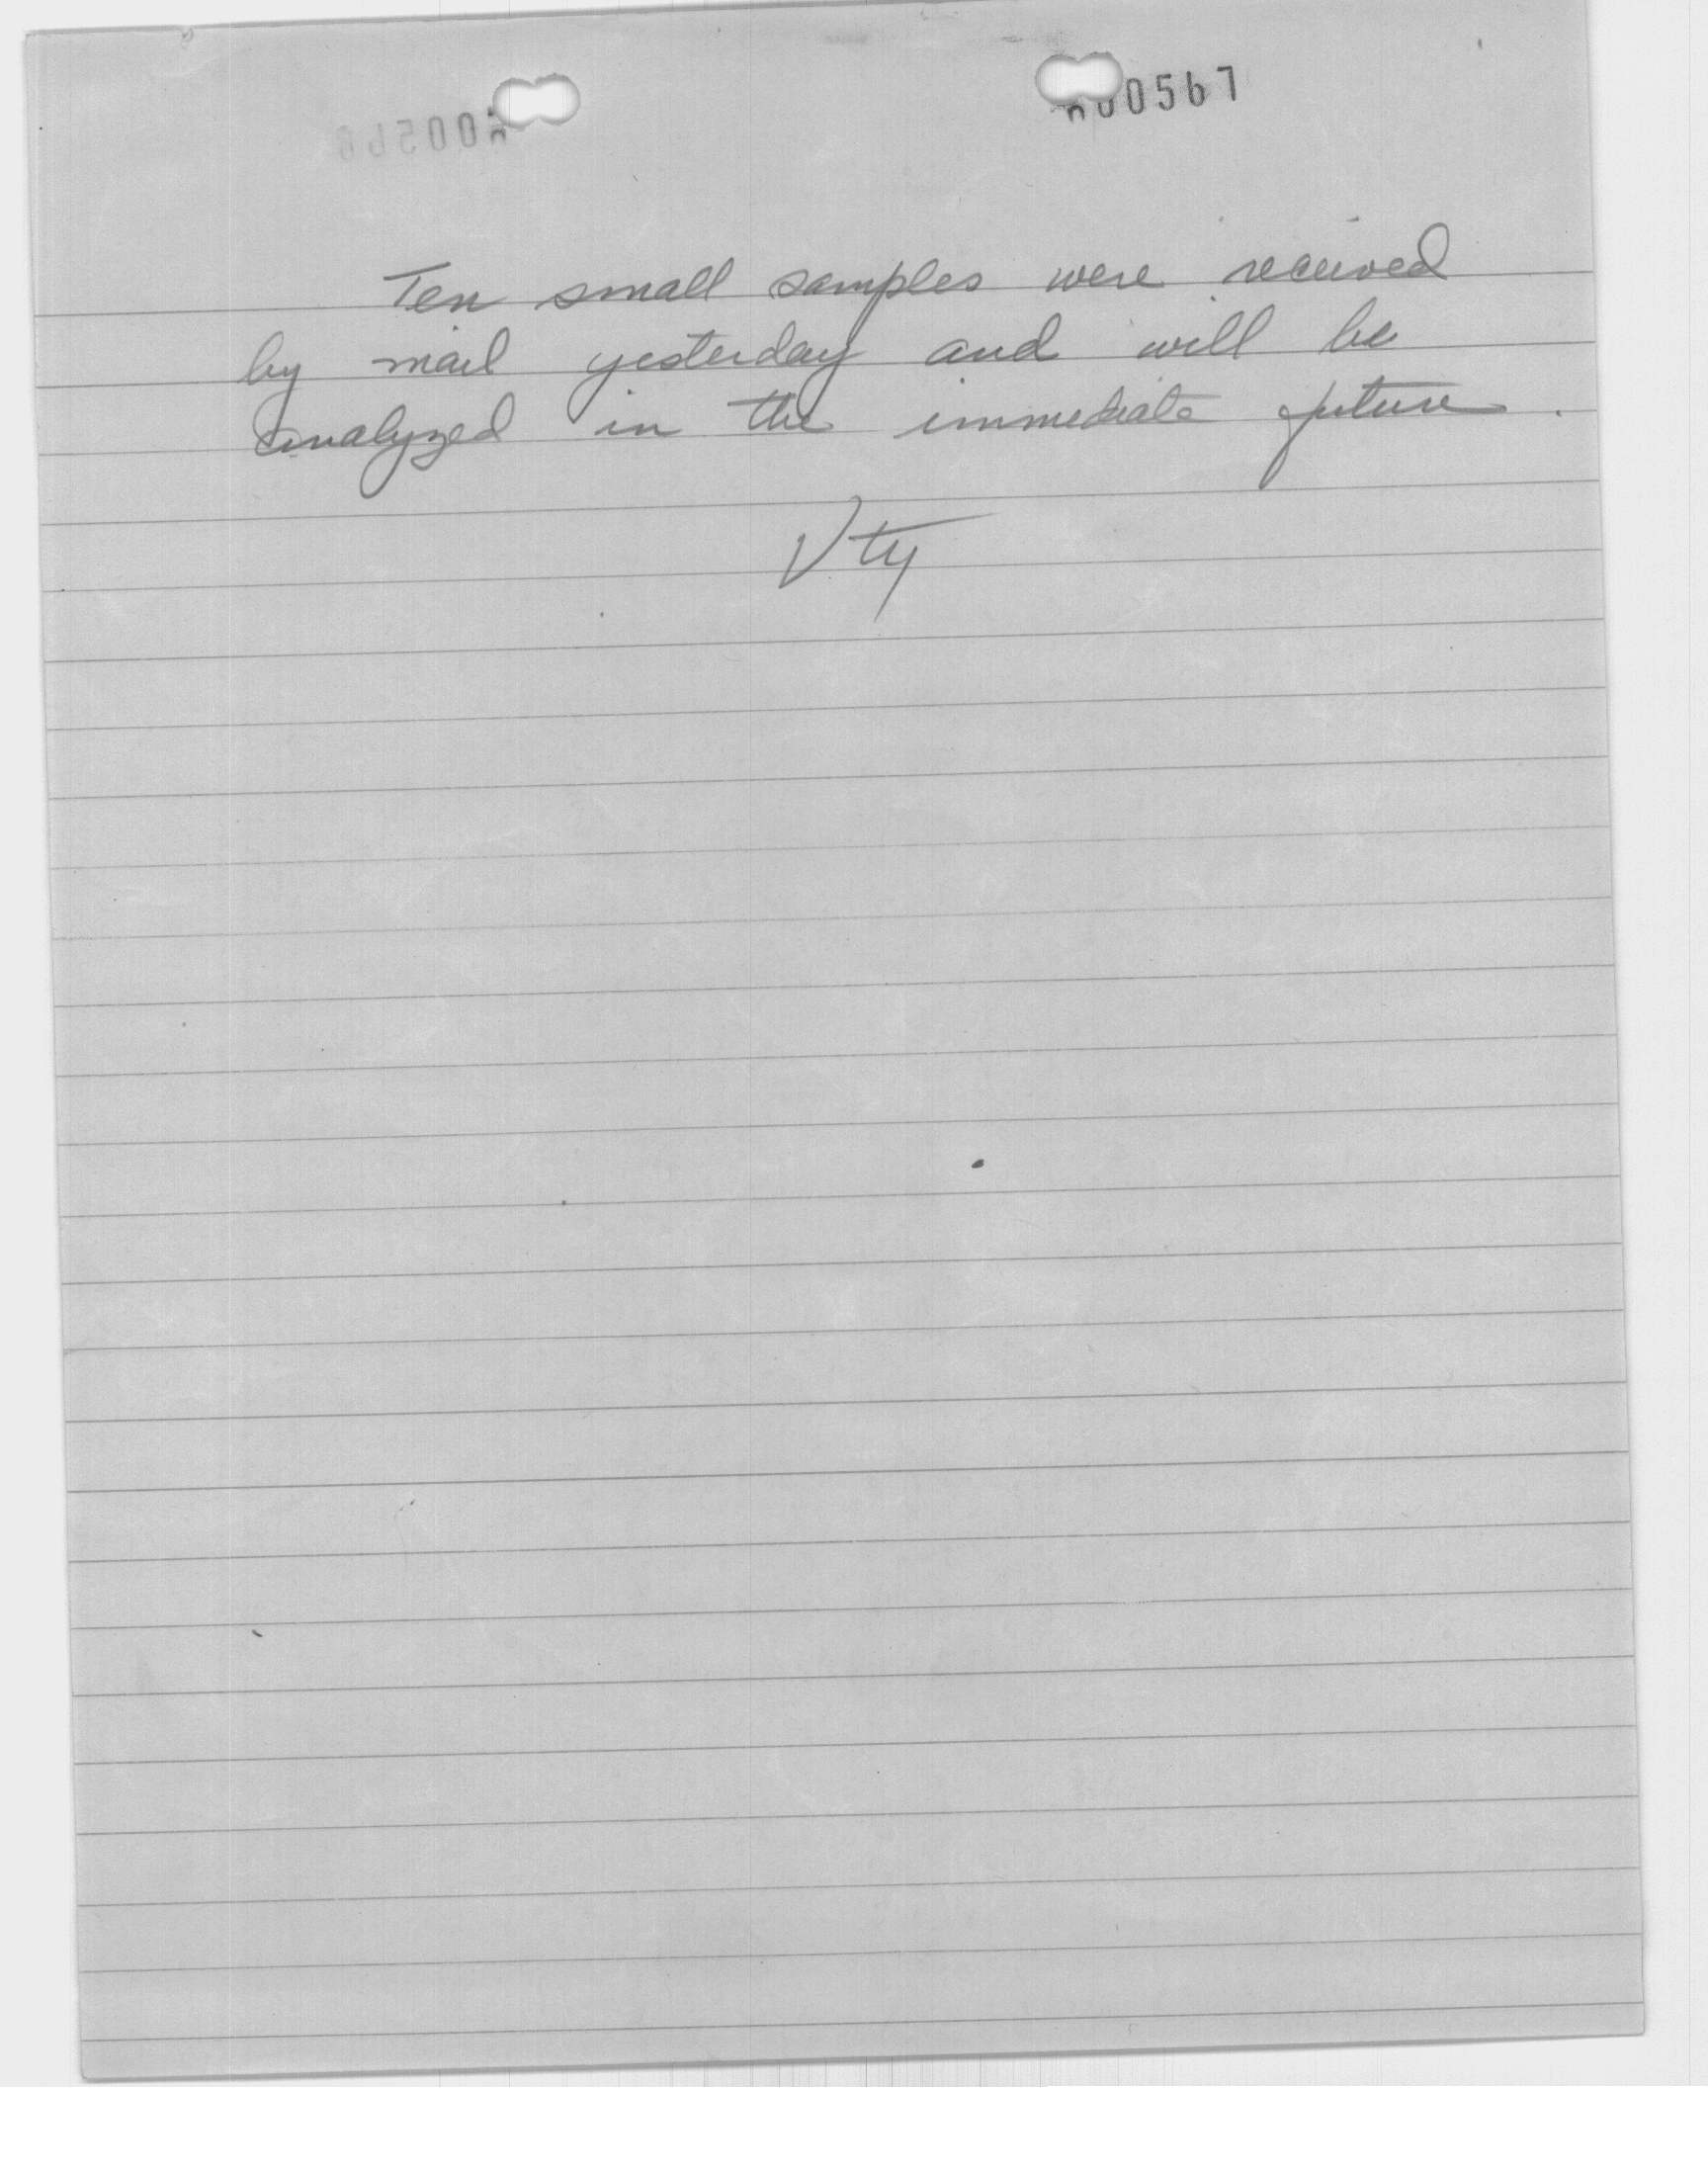 600567
Ten small samples were received
by mail yesterday and will be
analyzed in the immediate future.
Vty